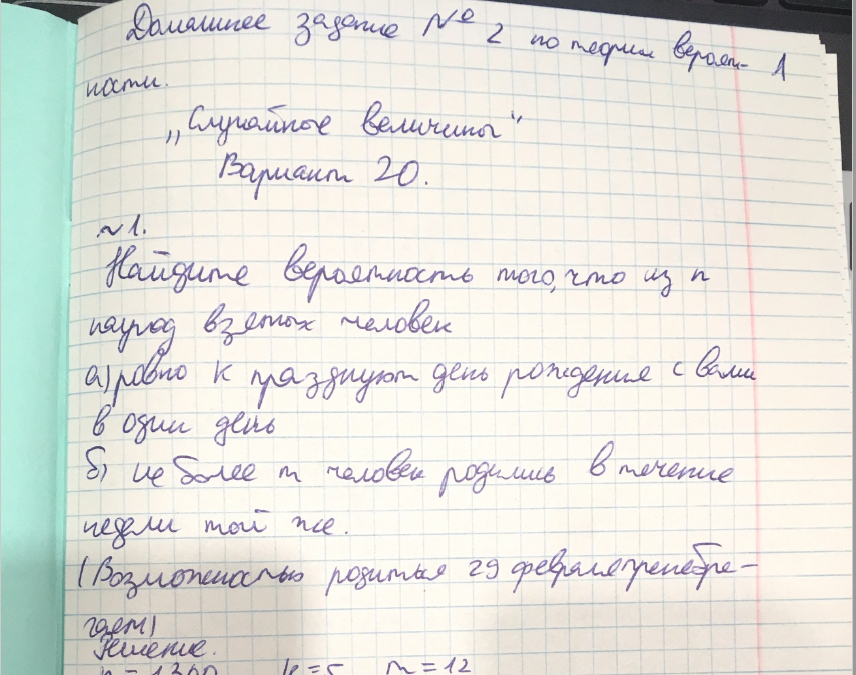 Домашнее задание № 2 по теории вероят- 1
ности.
„Случайные величины“
Вариант 20.
~1.
Найдите вероятность того, что из n
наугад взятых человек
а) ровно к празднуют день рождения с вами
в один день
б) не более m человек родились в течение
недели той же.
(Возможностью родиться 29 февраля пренебре-
гаем)
Решение.
n = 1300 k = 5 m = 12